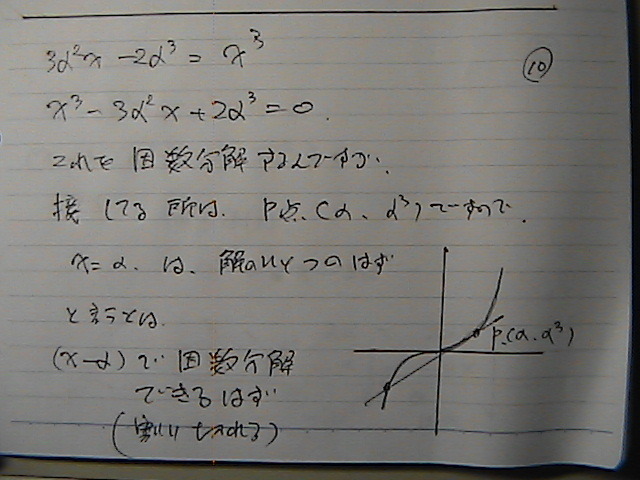 3α²x - 2α³ = x³
⑩
x³ - 3α²x + 2α³ = 0.
これを因数分解するんですが、
接してる所は、P点(α、α³)ですので、
x=α、は、解のひとつのはず
と言うことは、
P(α、α³)
(x-α)で因数分解
できるはず
(割り切れる)